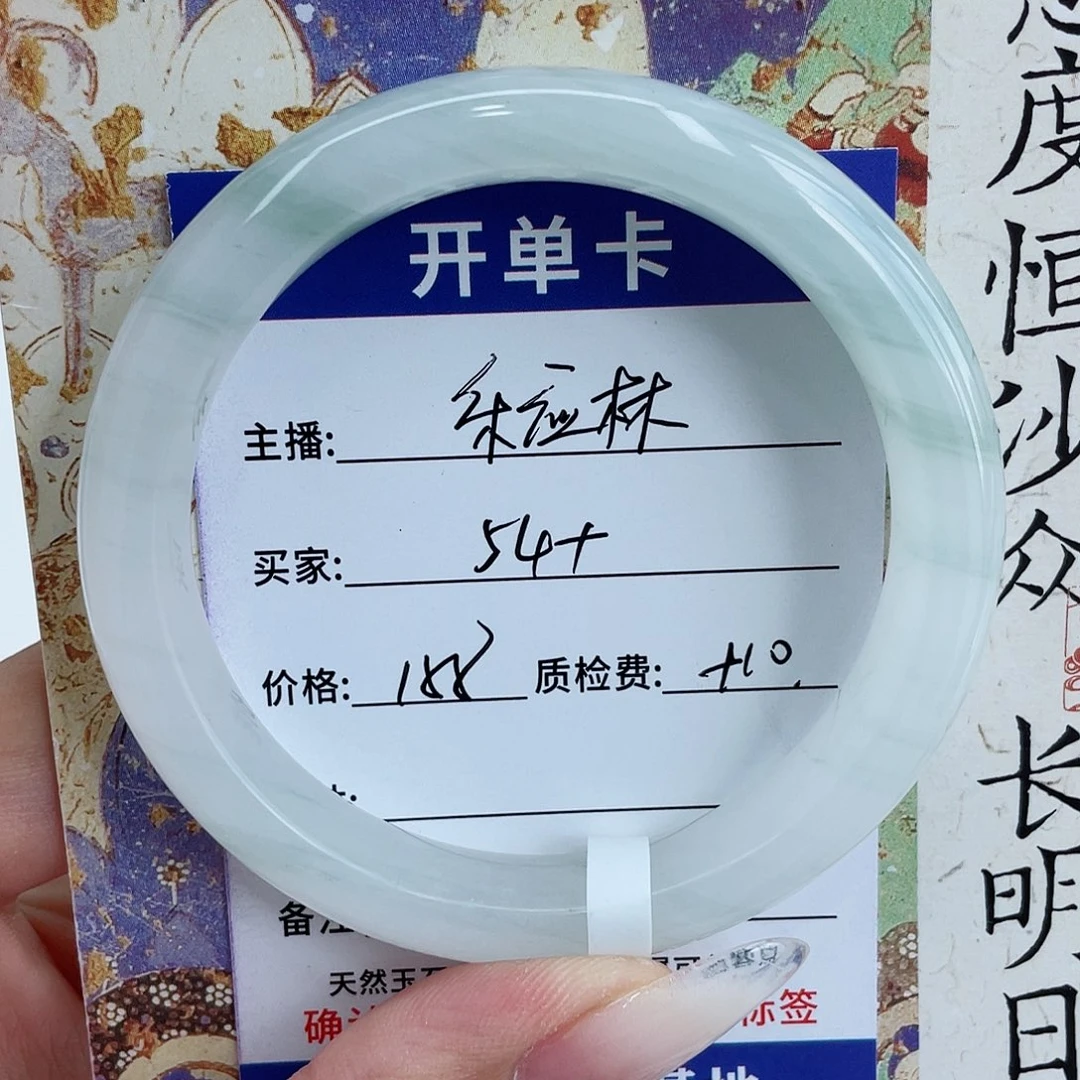 开单卡
主播: 朱应林
买家: 54+
价格: 188 质检费: +10.
备注
天然玉石
确认 标签
基地
度恒沙众
长明日